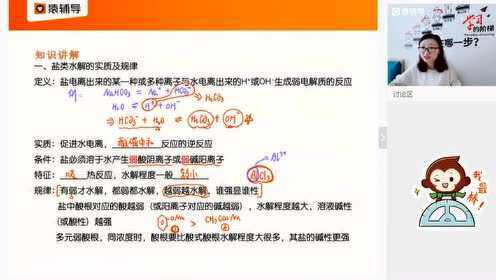 猿辅导
猿辅导
学习
的阶梯
哪一步?
知识讲解
一、盐类水解的实质及规律
定义：盐电离出来的某一种或多种离子与水电离出来的H⁺或OH⁻生成弱电解质的反应
例. NaHCO₃ = Na⁺ + HCO₃⁻
H₂O ⇌ H⁺ + OH⁻ → H₂CO₃
⇒ HCO₃⁻ + H₂O ⇌ H₂CO₃ + OH⁻
实质：促进水电离，酸碱中和反应的逆反应
条件：盐必须溶于水产生弱酸阴离子或弱碱阳离子
Al³⁺
特征：吸热反应，水解程度一般较小
AlCl₃
规律：有弱才水解，都弱都水解，越弱越水解，谁强显谁性
盐中酸根对应的酸越弱（或阳离子对应的碱越弱），水解程度越大，溶液碱性
（或酸性）越强
ONa > CH₃COONa
① ②
多元弱酸根，同浓度时，酸根要比酸式酸根水解程度大很多，其盐的碱性更强
讨论区
我最棒!